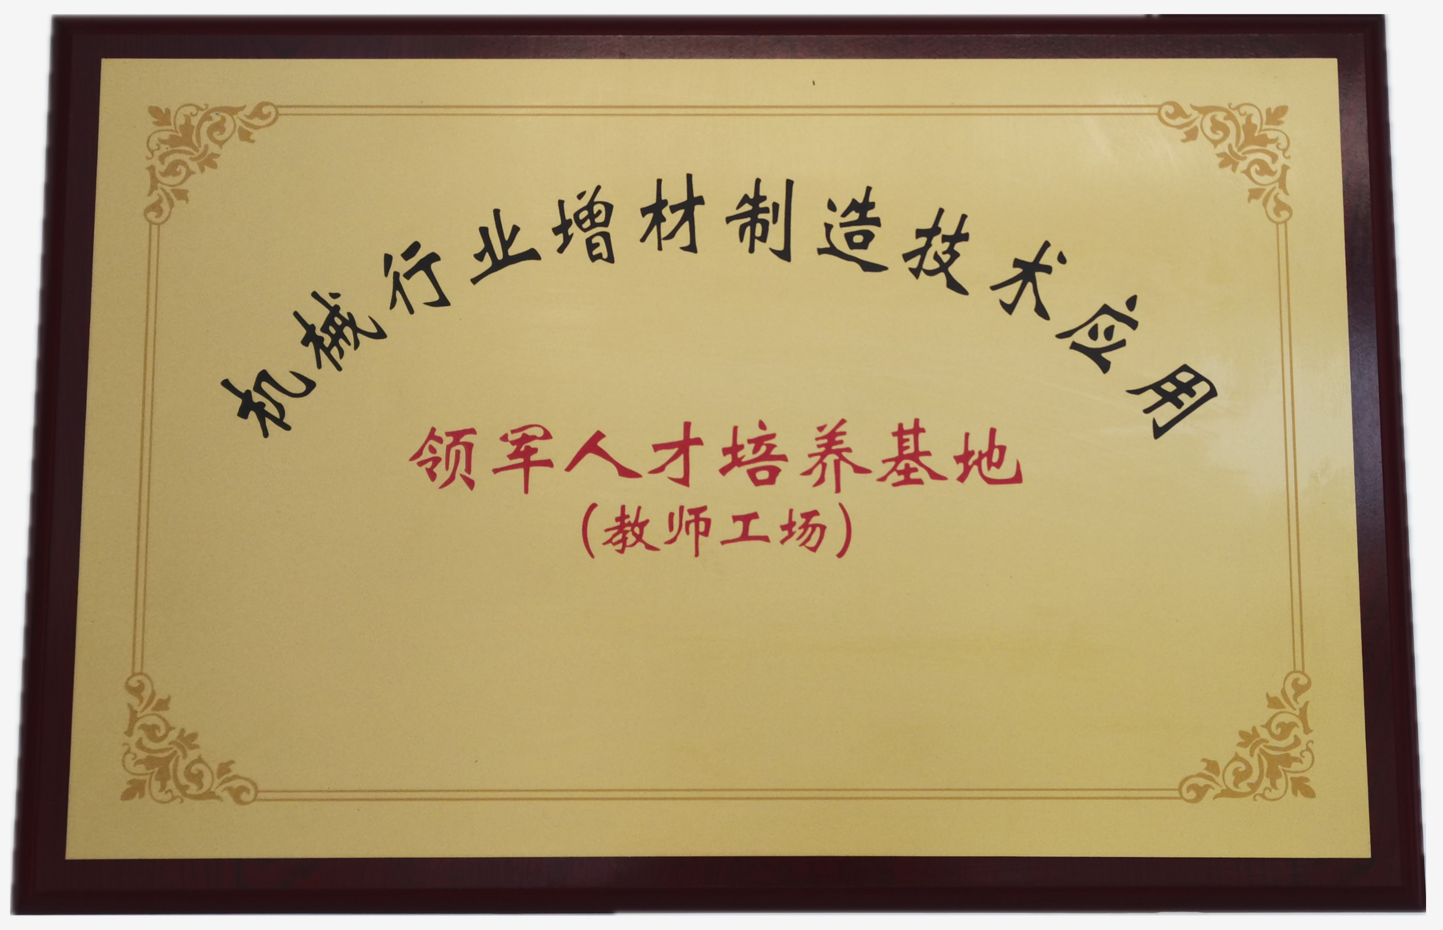 机械行业增材制造技术应用
领军人才培养基地
(教师工场)